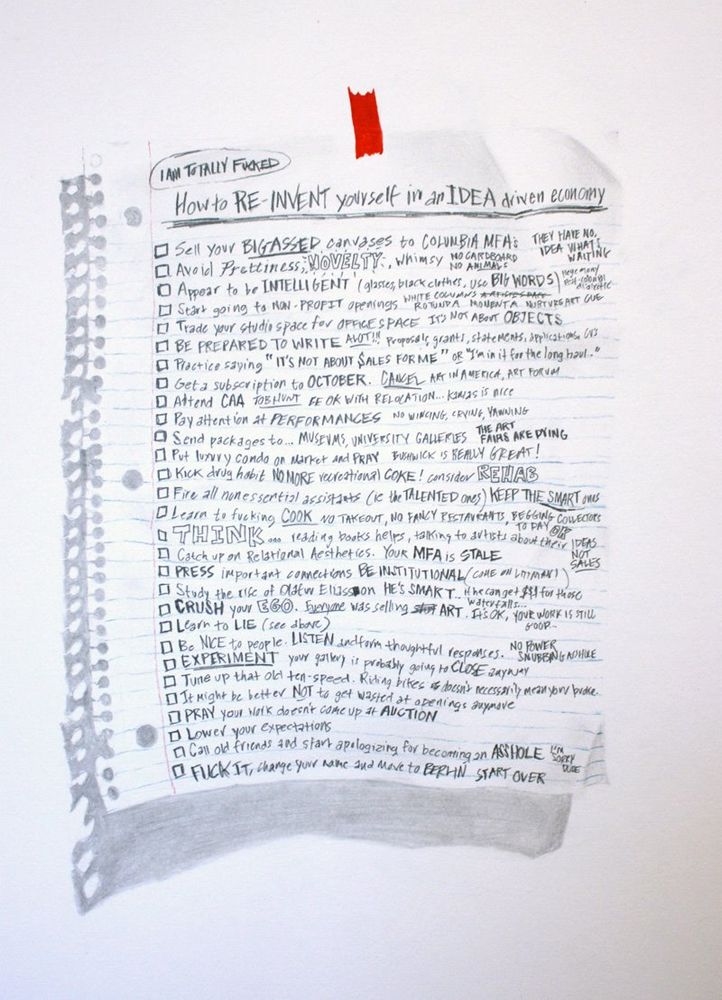 I AM TOTALLY FUCKED
How to RE-INVENT yourself in an IDEA driven economy
Sell your BIG ASSED canvases to COLUMBIA MFA's THEY HAVE NO IDEA WHAT'S WAITING
Avoid Prettiness, NOVELTY, whimsy NO CARDBOARD NO ANIMALS
Appear to be INTELLIGENT (glasses, black clothes, use BIG WORDS) hegemony post-colonial dialectic
Start going to NON-PROFIT openings WHITE COLUMNS ARTISTS SPACE ROTUNDA MOMENTA NURTUREART CUE
Trade your studio space for OFFICE SPACE IT'S NOT ABOUT OBJECTS
BE PREPARED TO WRITE ALOT!!! Proposals, grants, statements, applications, CV's
Practice saying "IT'S NOT ABOUT $ALES FOR ME" or "I'm in it for the long haul.."
Get a subscription to OCTOBER. CANCEL ART IN AMERICA, ART FORUM
Attend CAA JOB HUNT BE OK WITH RELOCATION... KANSAS is nice
Pay attention at PERFORMANCES NO WINCING, CRYING, YAWNING
Send packages to... MUSEUMS, UNIVERSITY GALLERIES THE ART FAIRS ARE DYING
Put luxury condo on Market and PRAY BUSHWICK is REALLY GREAT!
Kick drug habit NO MORE recreational COKE! consider REHAB
Fire all nonessential assistants (ie the TALENTED ones) KEEP THE SMART ones
Learn to fucking COOK NO TAKEOUT, NO FANCY RESTAURANTS, BEGGING COLLECTORS TO PAY OK
THINK... reading books helps, talking to artists about their IDEAS NOT SALES
Catch up on Relational Aesthetics. Your MFA is STALE
PRESS important connections BE INSTITUTIONAL (COME ON WHITNEY!)
Study the rise of Olafur Eliasson HE'S SMART.. if he can get $$$ for those waterfalls...
CRUSH your EGO. Everyone was selling ART. It's OK, YOUR WORK IS STILL GOOD..
Learn to LIE (see above)
Be NICE to people. LISTEN and form thoughtful responses. NO POWER SNUBBING ASSHOLE
EXPERIMENT your gallery is probably going to CLOSE anyway
Tune up that old ten-speed. Riding bikes doesn't necessarily mean your broke.
It might be better NOT to get wasted at openings anymore
PRAY your work doesn't come up at AUCTION
Lower your expectations
Call old friends and start apologizing for becoming an ASSHOLE I'm SORRY DUDE
FUCK IT, change your name and move to BERLIN START OVER